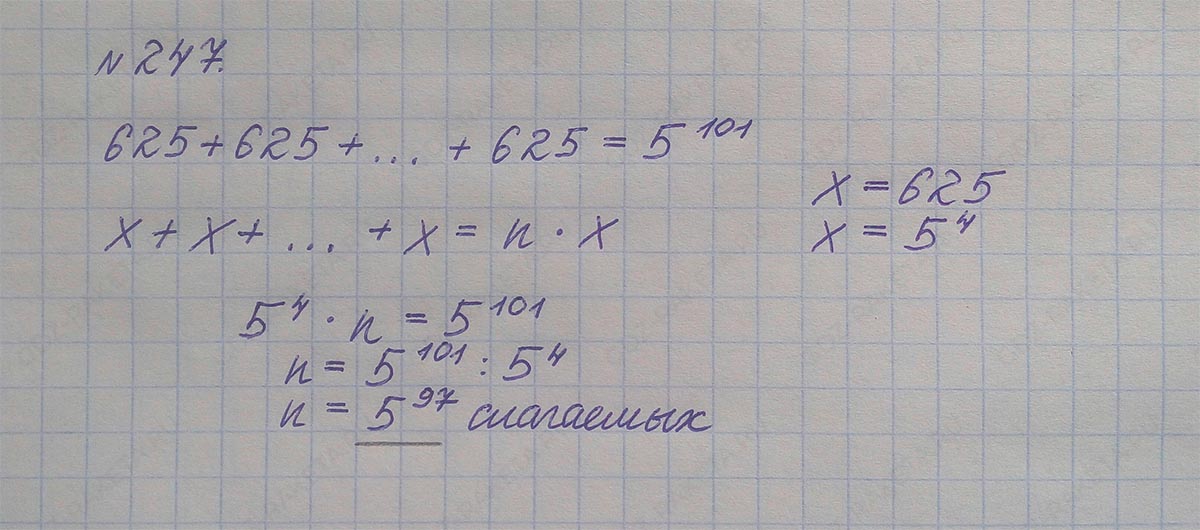 № 247.
625 + 625 + ... + 625 = 5^101
x + x + ... + x = n · x
x = 625
x = 5^4
5^4 · n = 5^101
n = 5^101 : 5^4
n = 5^97 слагаемых